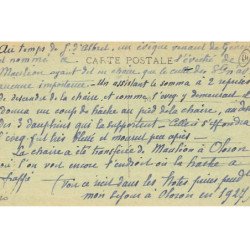 Au temps de J. d'Albret, un évêque venant de
est nommé à CARTE POSTALE l'évêché de
Mauléon ayant dit en chaire que le culte des
aucune importance. Un assistant le somma à 2 reprises
de descendre de la chaire et comme l'evêq y demeurant
donna un coup de hache au pied de la chaire, au
des 3 dauphins qui la supportent. Celle-ci s'effondra
l'evêq fut très blessé et mourut peu après.
La chaire a été transférée de Mauléon à Oloron
où l'on voit encore l'endroit où la hache a
frappé
(Voir ce récit dans les Notes prises pendt
mon séjour à Oloron en 1927